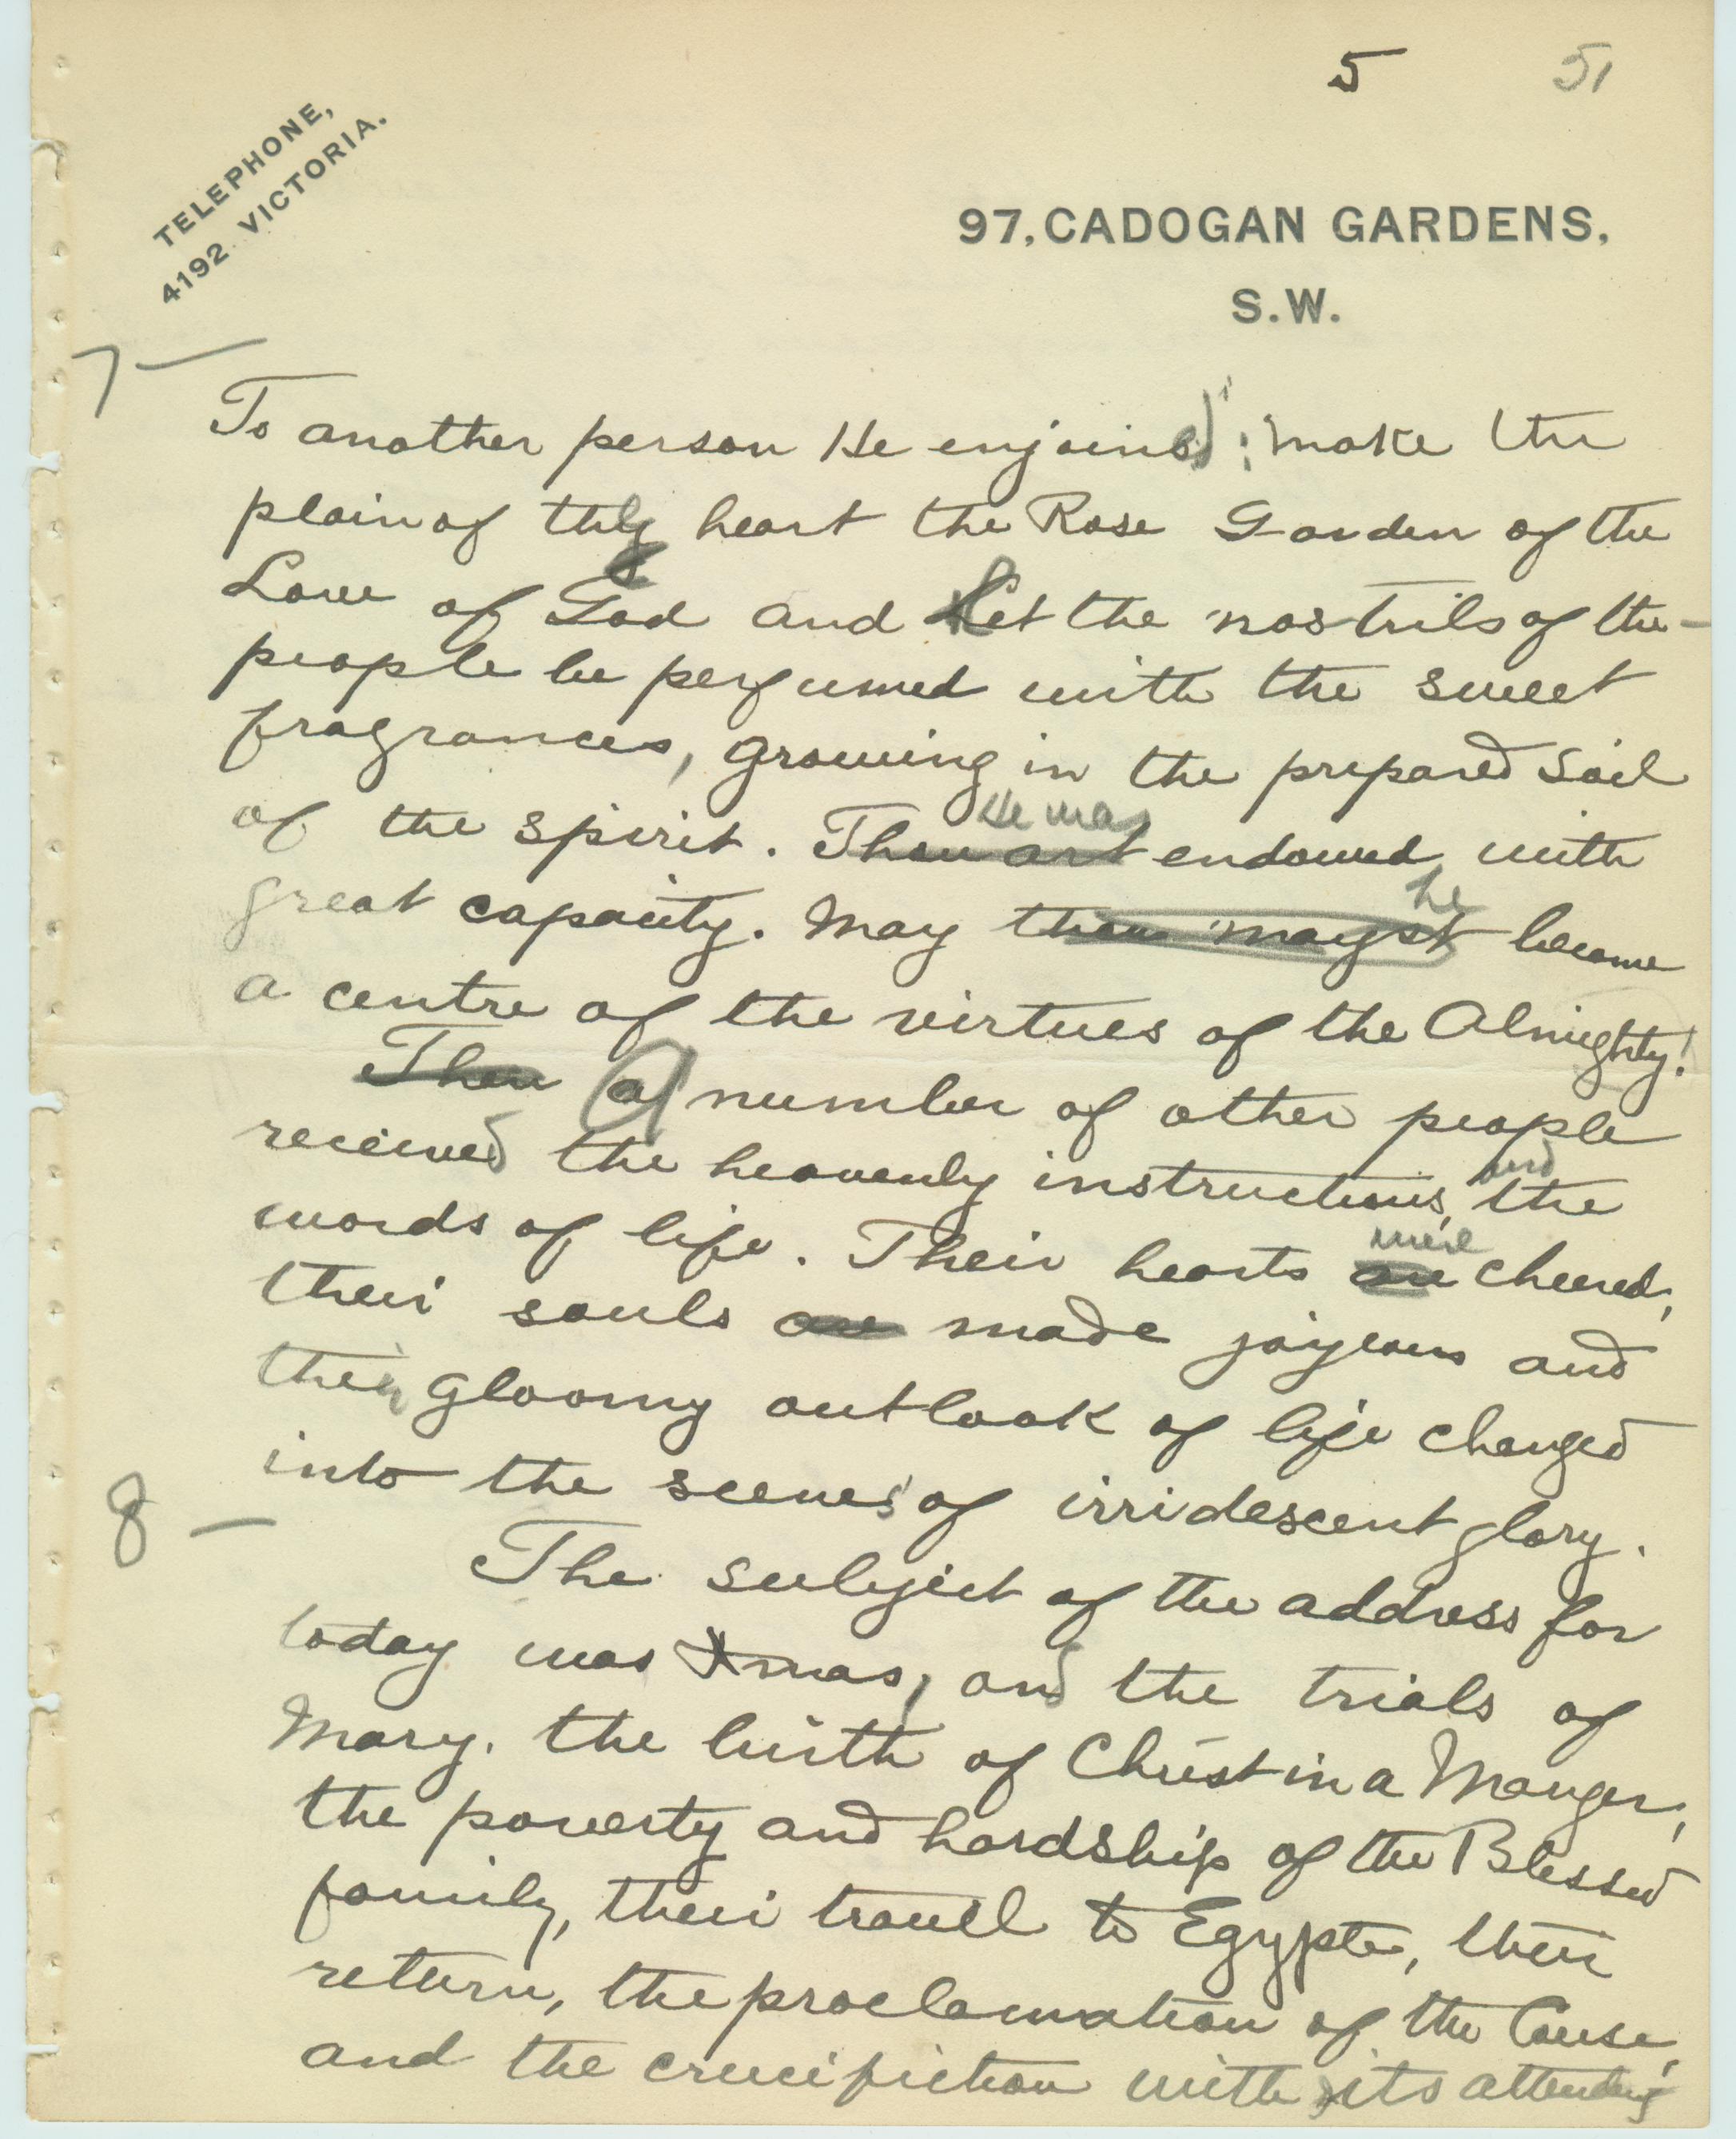 5 51
TELEPHONE,
4192 VICTORIA.
97, CADOGAN GARDENS,
S.W.
7 —
To another person He enjoined: make the
plain of thy heart the Rose Garden of the
Love of God and let the nostrils of the
people be perfumed with the sweet
fragrances, growing in the prepared soil
He was
of the spirit. Thou art endowed with
he
great capacity. May thou mayst become
a centre of the virtues of the Almighty!
Then a number of other people
and
received the heavenly instructions, the
were
words of life. Their hearts are cheered,
their souls are made joyous and
their gloomy outlook of life changed
into the scenes of irridescent glory.
8 —
The subject of the address for
today was Xmas, and the trials of
Mary. the birth of Christ in a Manger,
the poverty and hardship of the Blessed
family, their travel to Egypte, their
return, the proclamation of the Cause,
and the crucifiction with its attending